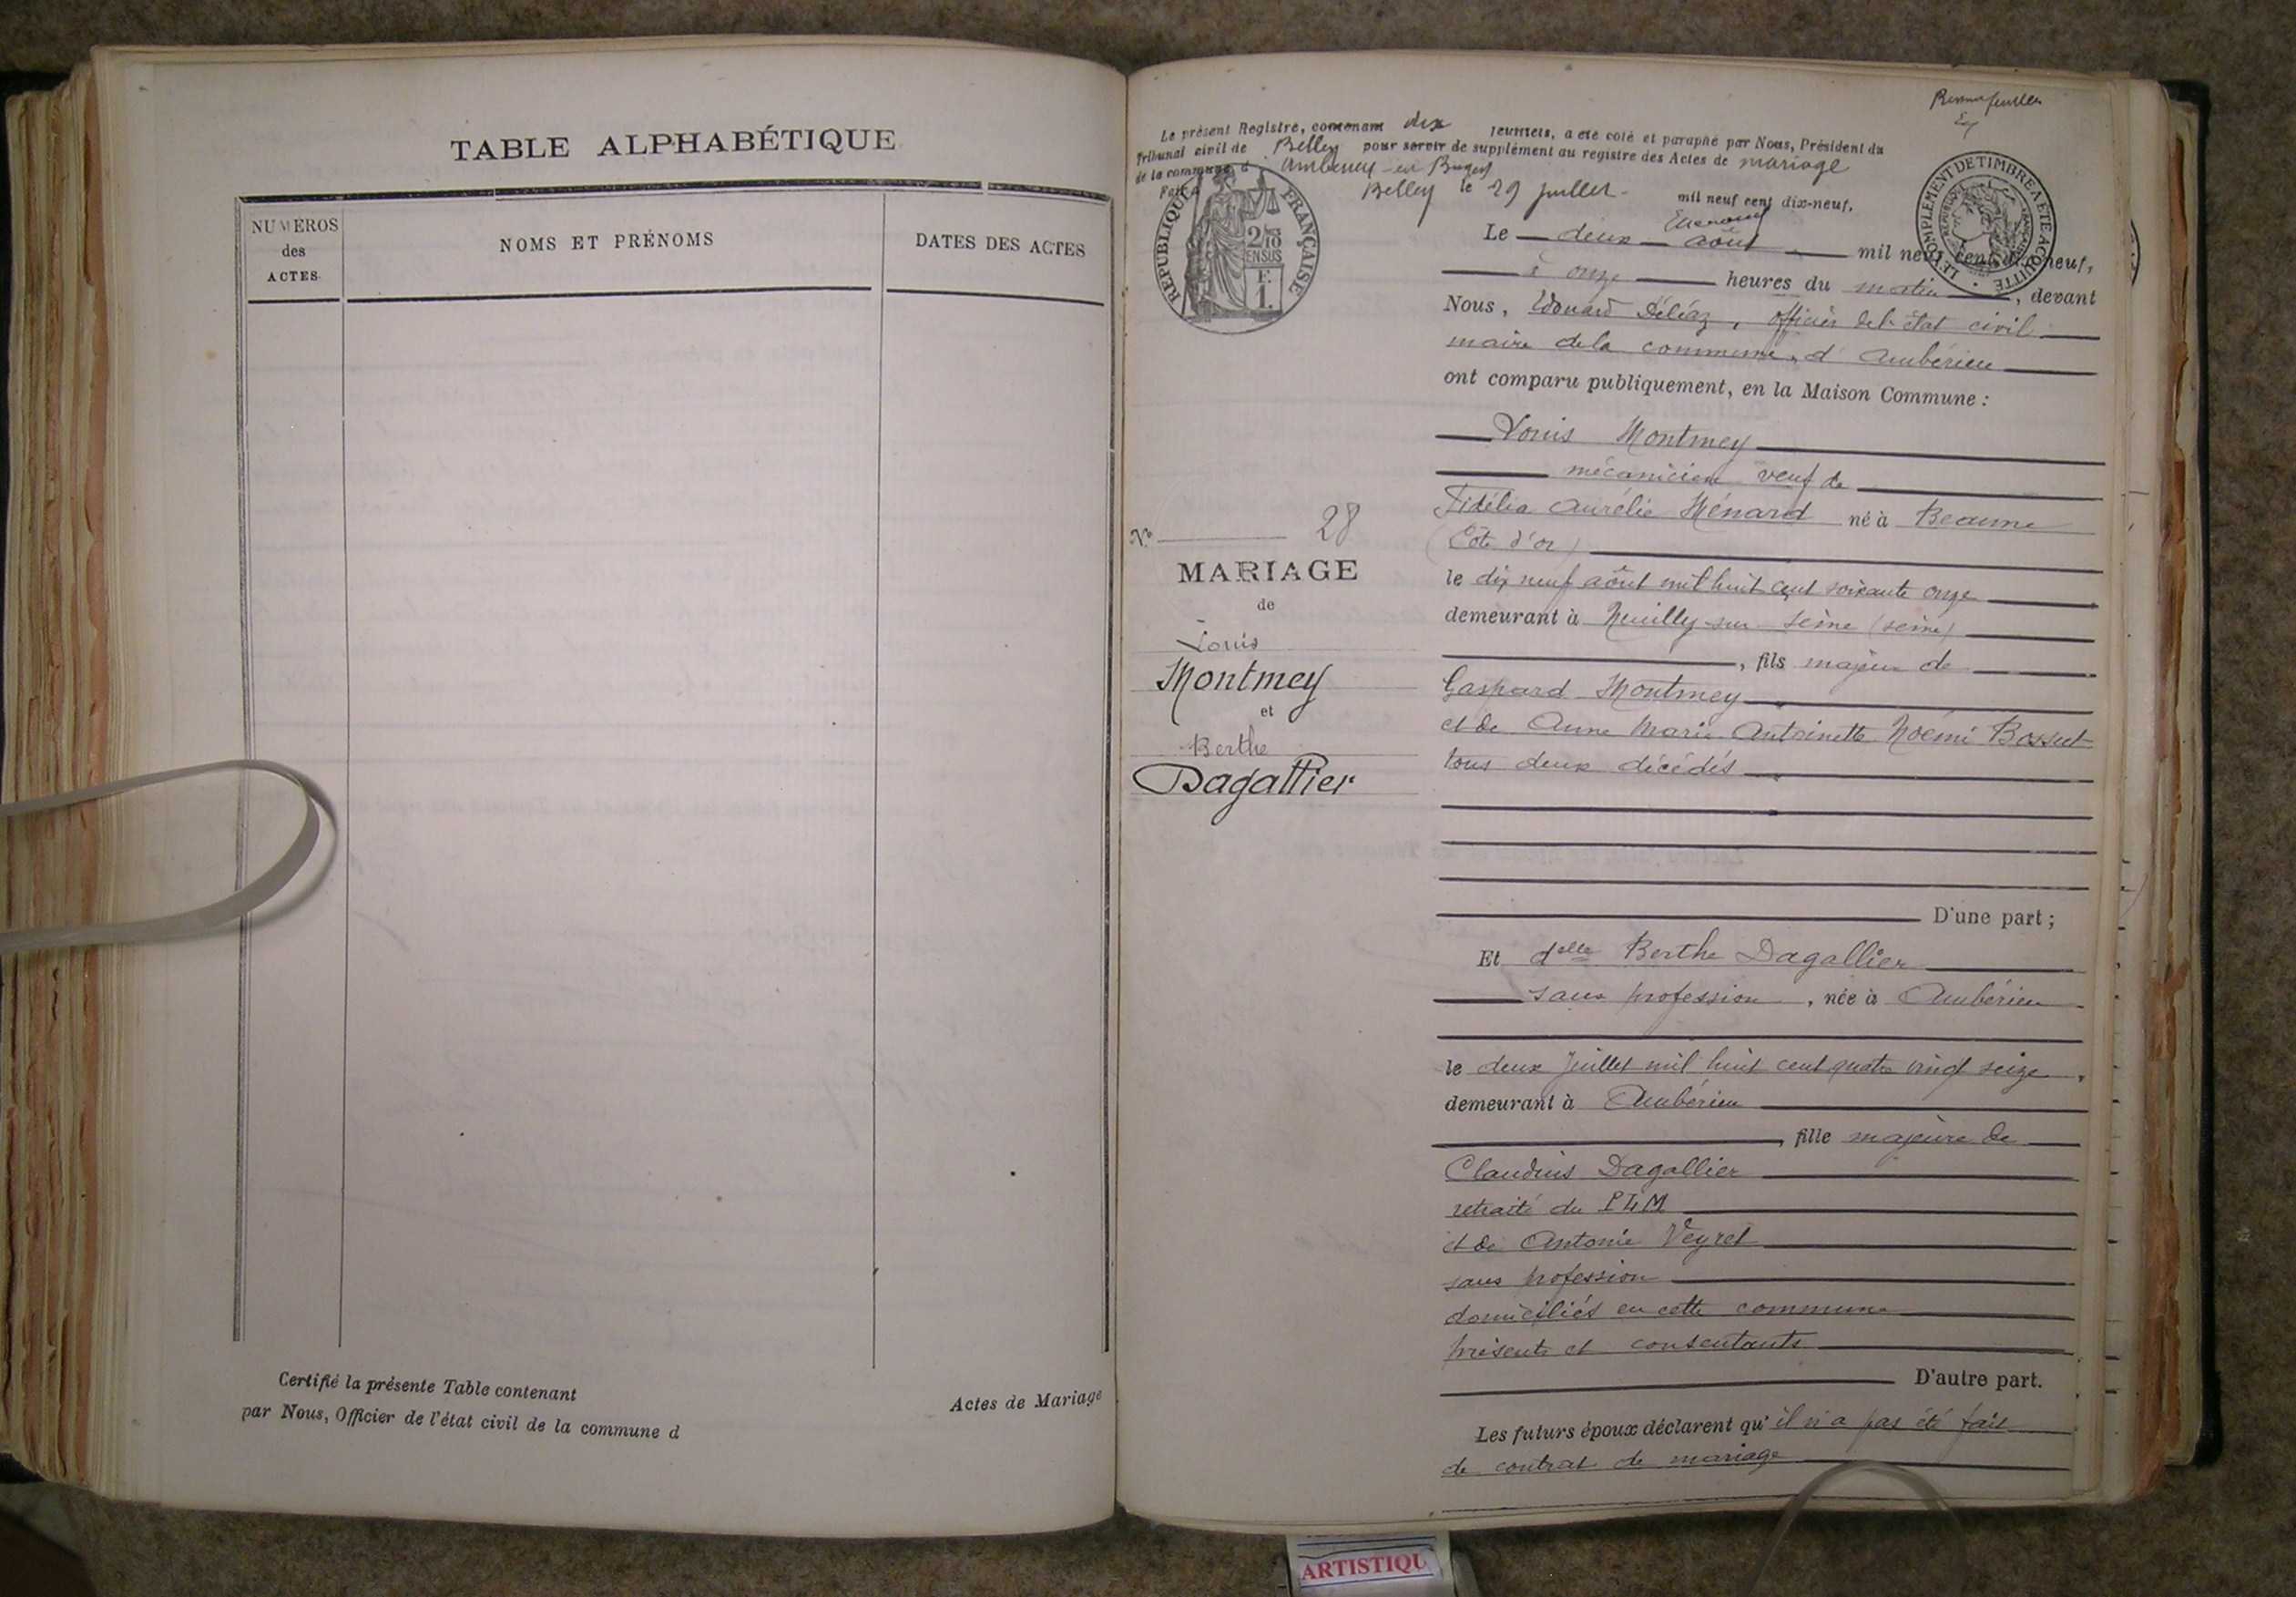 TABLE ALPHABÉTIQUE
NUMÉROS
des
ACTES
NOMS ET PRÉNOMS
DATES DES ACTES
Certifié la présente Table contenant
Actes de Mariage
par Nous, Officier de l'état civil de la commune d
Le présent Registre, contenant dix feuillets, a été coté et paraphé par Nous, Président du
Tribunal civil de Belley pour servir de supplément au registre des Actes de mariage
de la commune d'Ambérieu-en-Bugey
Fait à Belley le 29 juillet mil neuf cent dix-neuf,
RÉPUBLIQUE FRANÇAISE
2/10
EN SUS
F.
1.
LE COMPLÉMENT DE TIMBRE A ÉTÉ ACQUITTÉ
Le deux août mil neuf cent dix-neuf,
à onze heures du matin, devant
Nous, Edouard Déléaz, officier de l'état civil
maire de la commune d'Ambérieu
ont comparu publiquement, en la Maison Commune :
Louis Montmey
mécanicien veuf de
Fidélia Aurélie Ménard né à Beaune
(Côte d'or)
le dix neuf août mil huit cent soixante onze
demeurant à Neuilly-sur Seine (Seine)
, fils majeur de
Gaspard Montmey
et de Anne Marie Antoinette Noémi Bossut
tous deux décédés
D'une part ;
No 28
MARIAGE
de
Louis
Montmey
et
Berthe
Dagallier
Et delle Berthe Dagallier
sans profession, née à Ambérieu
le deux Juillet mil huit cent quatre vingt seize
demeurant à Ambérieu
, fille majeure de
Claudius Dagallier
retraité du PLM
et de Antonie Veyret
sans profession
domiciliés en cette commune
présents et consentants
D'autre part.
Les futurs époux déclarent qu'il n'a pas été fait
de contrat de mariage
ARTISTIQU